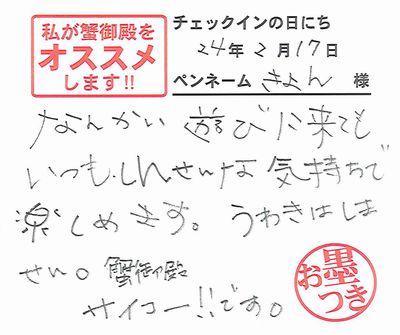 私が蟹御殿を
オススメ
します!!
チェックインの日にち
24年2月17日
ペンネーム きよん 様
なんかい 遊びに来ても
いつも、しんせんな 気持ちで
楽しめます。うわきはしま
せん。蟹御殿
サイコー!!です。
お墨つき